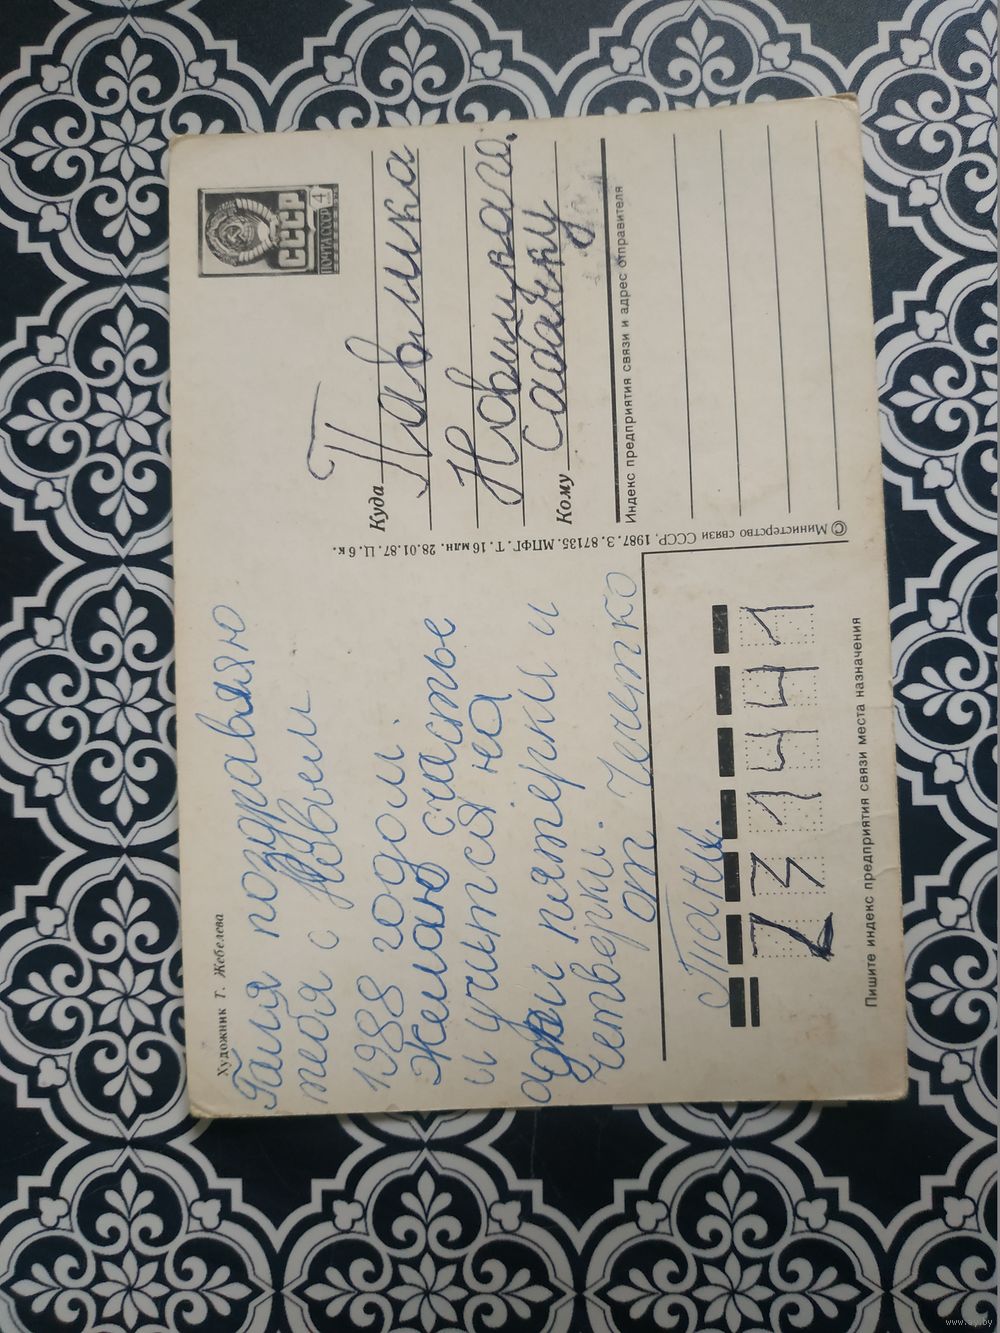 Художник Т. Жебелева
Галя поздравляю
тебя с Новым
1988 годом.
Желаю счастье
и учится на
адни пятерки и
четверки.
от. Чечетко
Тани.
СССР
ПОЧТА СССР 4
Куда
Павлика
Новицкаго.
Кому
Сабачку
Индекс предприятия связи и адрес отправителя
© Министерство связи СССР, 1987. З. 87135. МПФГ. Т. 16 млн. 28.01.87. Ц. 6 к.
231441
Пишите индекс предприятия связи места назначения
www.ay.by